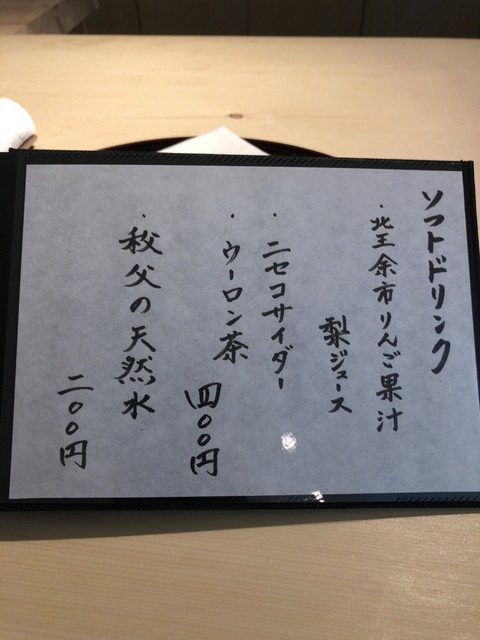 ソフトドリンク
・北王余市りんご果汁
梨ジュース
・ニセコサイダー
・ウーロン茶
四〇〇円
・秩父の天然水
二〇〇円